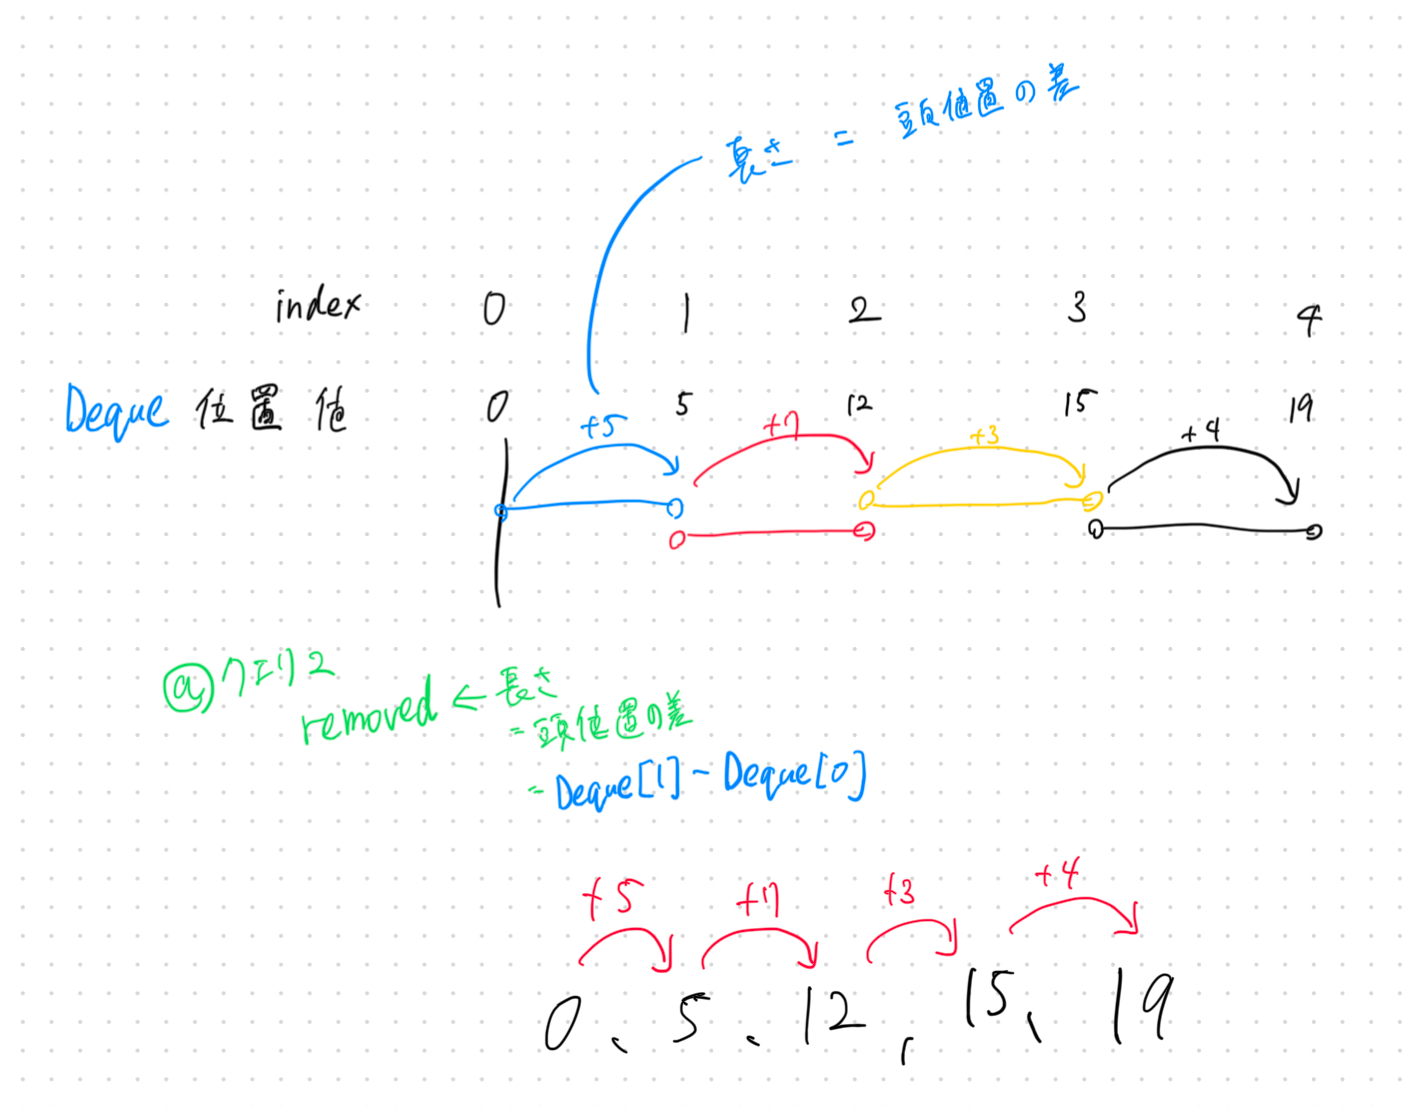 長さ = 頭位置の差
index 0 1 2 3 4
Deque 位置 値 0 5 12 15 19
+5 +7 +3 +4
@クエリ2
removed ← 長さ
= 頭位置の差
= Deque[1] - Deque[0]
+5 +7 +3 +4
0、5、12, 15、19